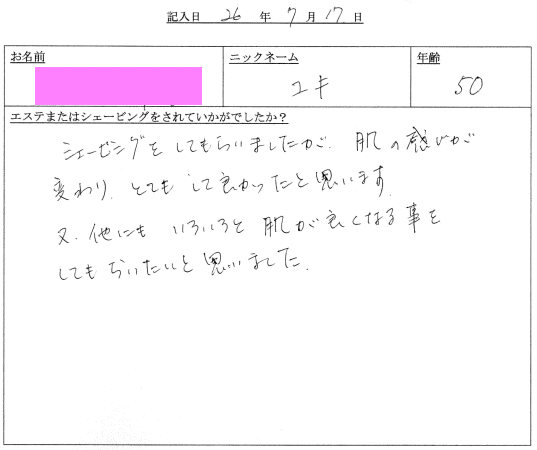 記入日 26 年 7 月 17 日
お名前 ニックネーム 年齢
ユキ 50
エステまたはシェービングをされていかがでしたか？
シェービングをしてもらいましたが、肌の感じが
変わり、とても して良かったと思います。
又、他にも いろいろと 肌が良くなる事を
してもらいたいと思いました。